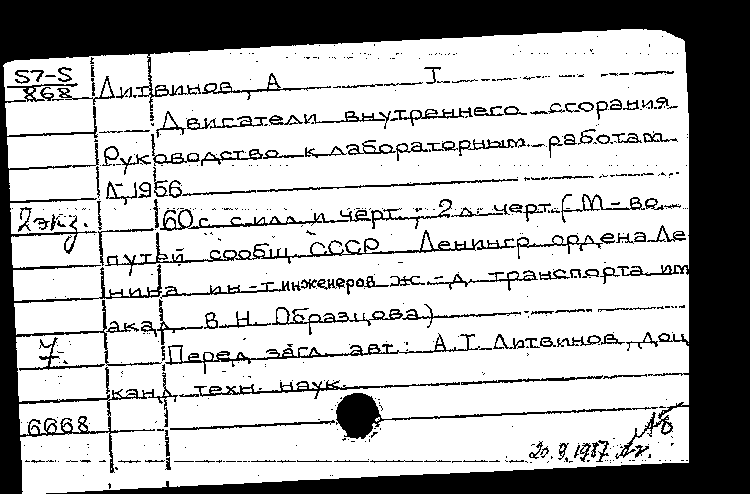 57-5 Литвинов, А Т
868
Двигатели внутреннего сгорания
Руководство к лабораторным работам
Л, 1956
2 экз. 60 с с илл и черт; 2 л. черт (М-во
путей сообщ СССР Ленингр ордена Ле
нина ин-т инженеров ж.-д. транспорта им
акад В. Н. Образцова)
7. Перед загл. авт: А.Т. Литвинов, доц
канд техн. наук.
6668
20.9.1987